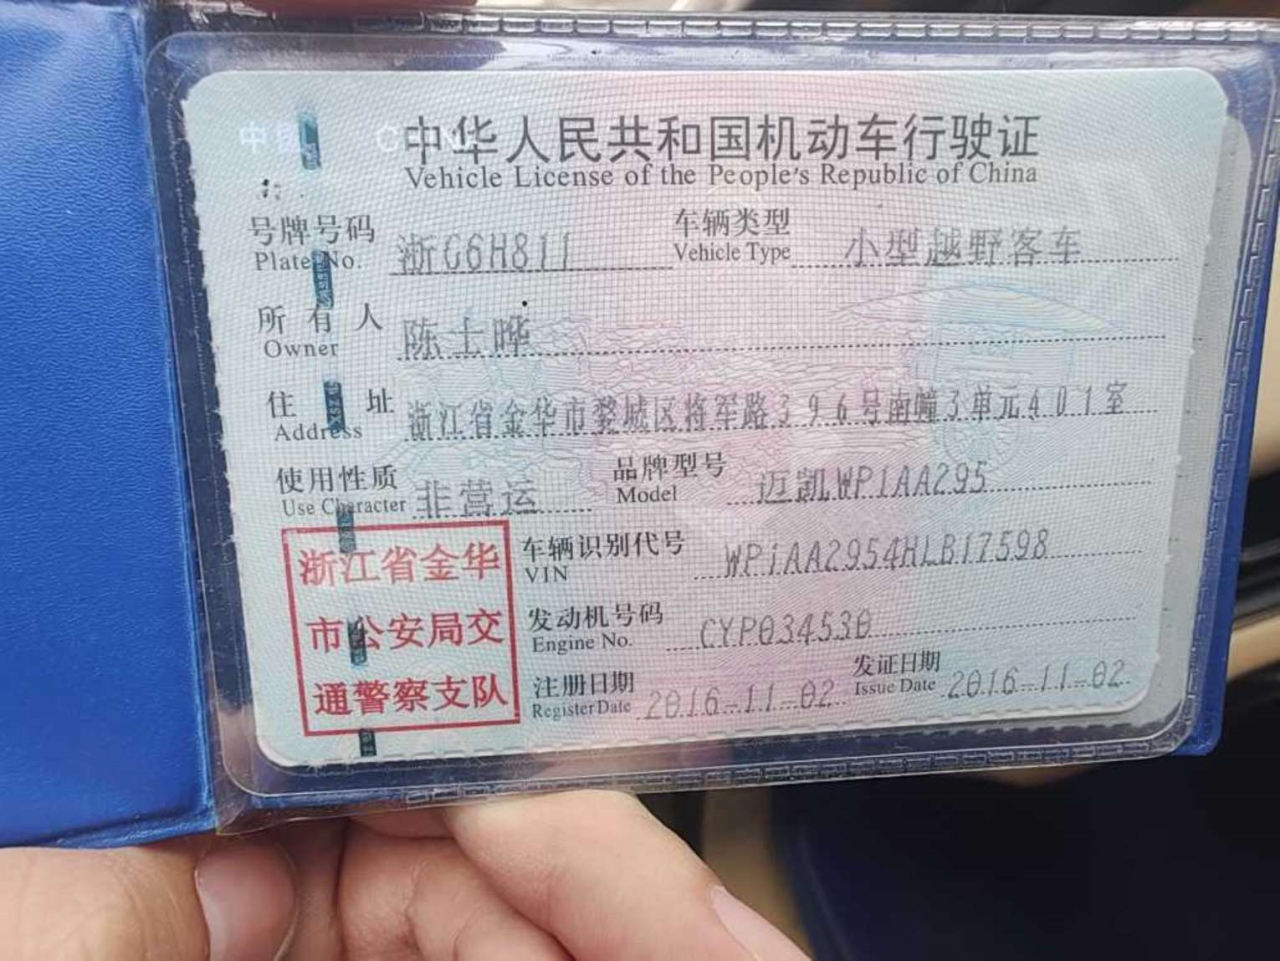 中华人民共和国机动车行驶证
Vehicle License of the People's Republic of China
号牌号码 浙G6H811 车辆类型 小型越野客车
Plate No. Vehicle Type
所有人 陈士晔
Owner
住址 浙江省金华市婺城区将军路396号南幢3单元401室
Address
使用性质 非营运 品牌型号 迈凯WP1AA295
Use Character Model
浙江省金华 车辆识别代号 WP1AA2954HLB17598
VIN
市公安局交 发动机号码 CYP034530
Engine No.
通警察支队 注册日期 2016-11-02 发证日期 2016-11-02
Register Date Issue Date